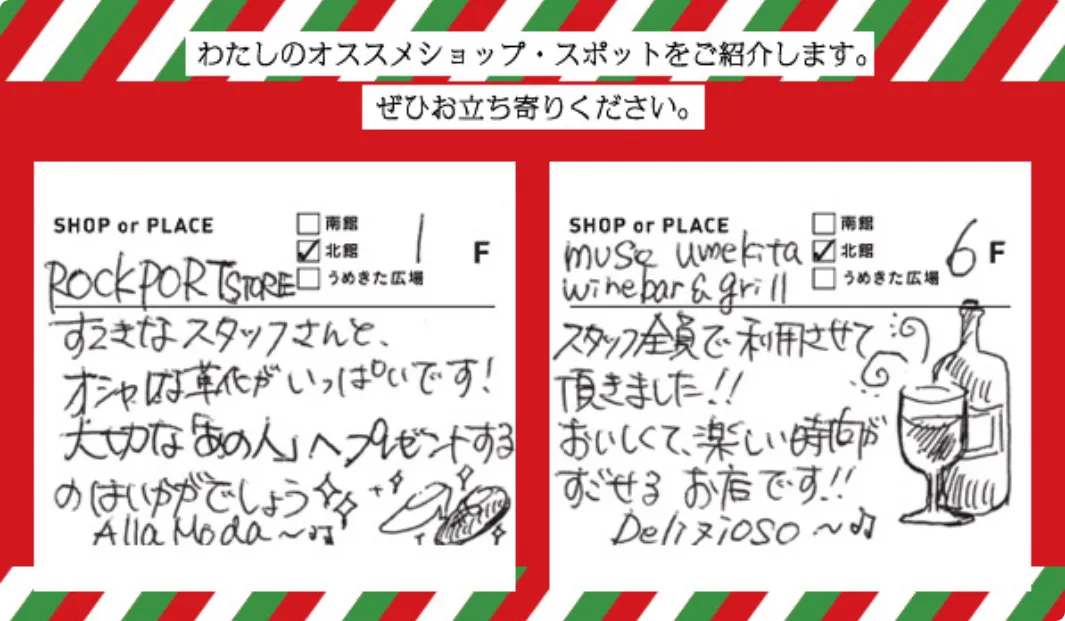 わたしのオススメショップ・スポットをご紹介します。
ぜひお立ち寄りください。
SHOP or PLACE
南館
北館
うめきた広場
1 F
ROCKPORT STORE
すてきなスタッフさんと、
オシャレな革化がいっぱいです！
大切な「あの人」へプレゼントする
のはいかがでしょう
Alla Moda 〜♫
SHOP or PLACE
南館
北館
うめきた広場
6 F
musq umekita
winebar & grill
スタッフ全員で利用させて
頂きました！！
おいしくて、楽しい時間が
すごせる お店です！！
Delizioso 〜♫